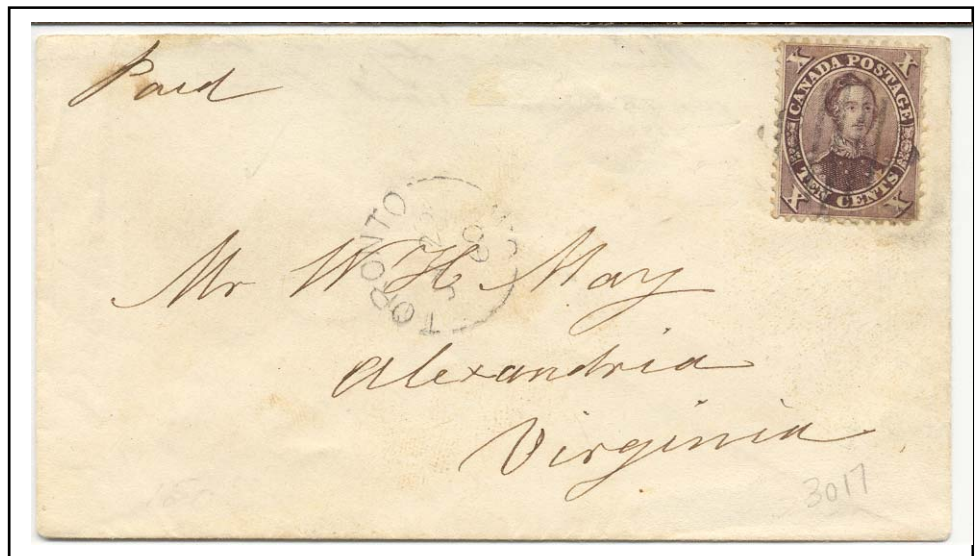 Paid
X X
CANADA POSTAGE
TEN CENTS
X X
TORONTO
60
Mr W H May
Alexandria
Virginia
3017